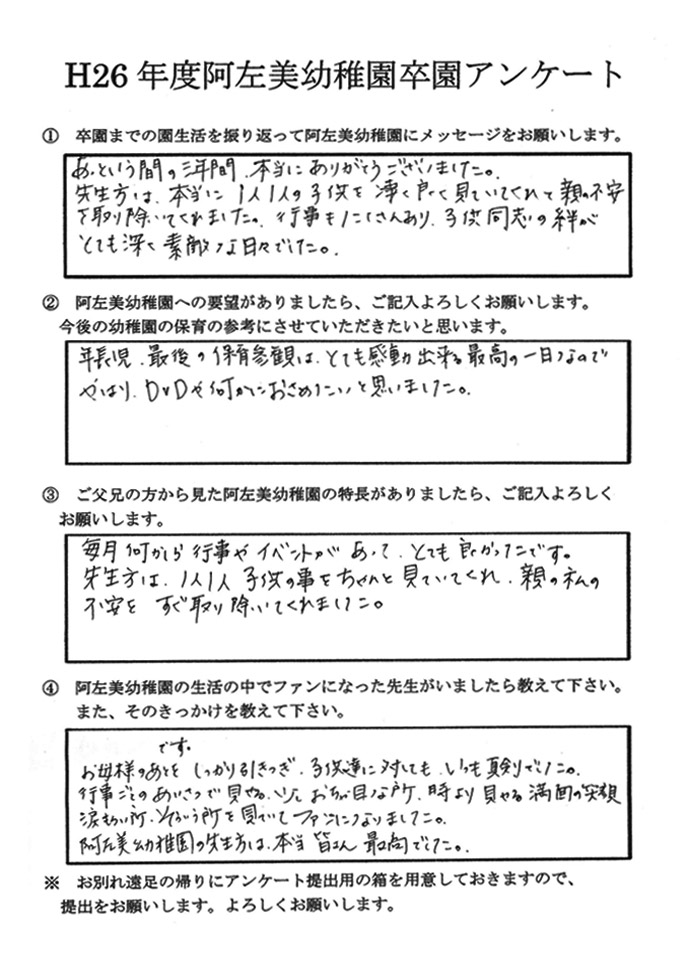 H26年度阿左美幼稚園卒園アンケート
① 卒園までの園生活を振り返って阿左美幼稚園にメッセージをお願いします。
あっという間の三年間、本当にありがとうございました。
先生方は、本当に1人1人の子供を凄く良く見ていてくれて親の不安
を取り除いてくれました。行事もたくさんあり、子供同志の絆が
とても深く素敵な日々でした。
② 阿左美幼稚園への要望がありましたら、ご記入よろしくお願いします。
今後の幼稚園の保育の参考にさせていただきたいと思います。
年長児、最後の保育参観は、とても感動出来る最高の一日なので
やはり、DVDや何かにおさめたいと思いました。
③ ご父兄の方から見た阿左美幼稚園の特長がありましたら、ご記入よろしく
お願いします。
毎月何かしら行事やイベントがあって、とても良かったです。
先生方は、1人1人子供の事をちゃんと見ていてくれ、親の私の
不安をすぐ取り除いてくれました。
④ 阿左美幼稚園の生活の中でファンになった先生がいましたら教えて下さい。
また、そのきっかけを教えて下さい。
です。
お母様のあとをしっかり引きつぎ、子供達に対しても、いつも真剣でした。
行事ごとのあいさつで見せる、少しおちゃ目な所、時より見せる満面の笑顔
涙もろい所、そういう所を見ていてファンになりました。
阿左美幼稚園の先生方は、本当皆さん最高でした。
※ お別れ遠足の帰りにアンケート提出用の箱を用意しておきますので、
提出をお願いします。よろしくお願いします。